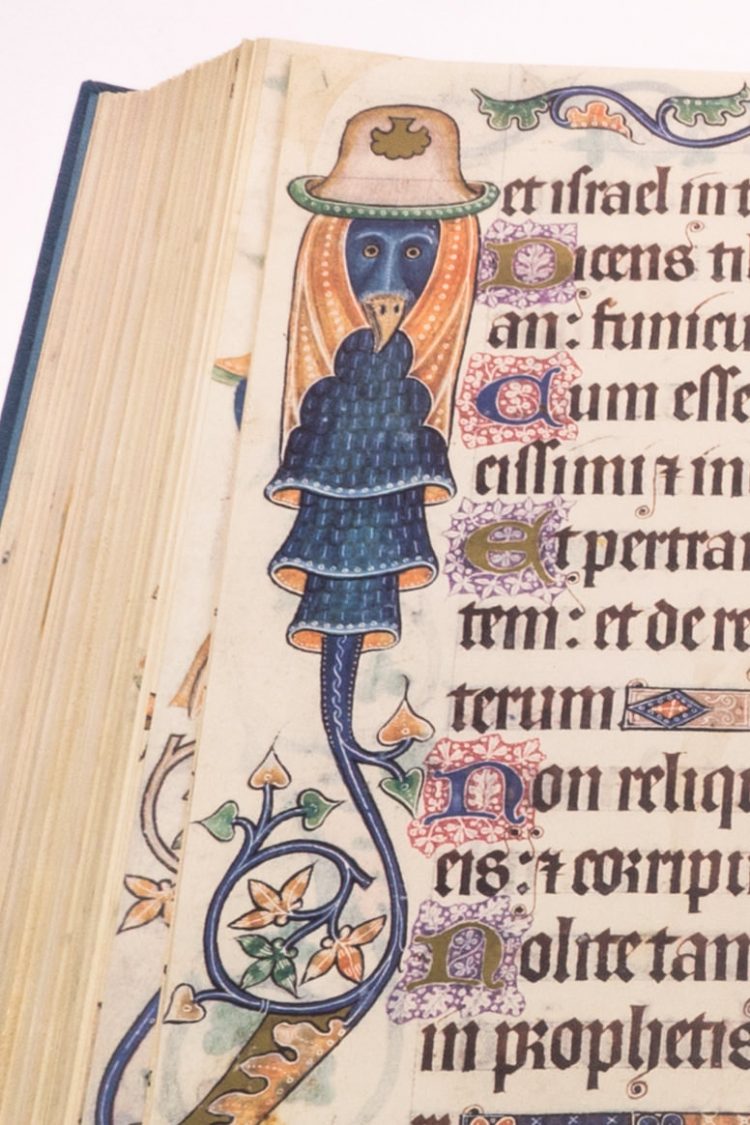 et israel in t
Dicens ti
an: funicu
Cum esse
cissimi ⁊ in
Et pertran
tem: et de re
terum
Non reliqu
eis: ⁊ corripu
Nolite tan
in prophetis